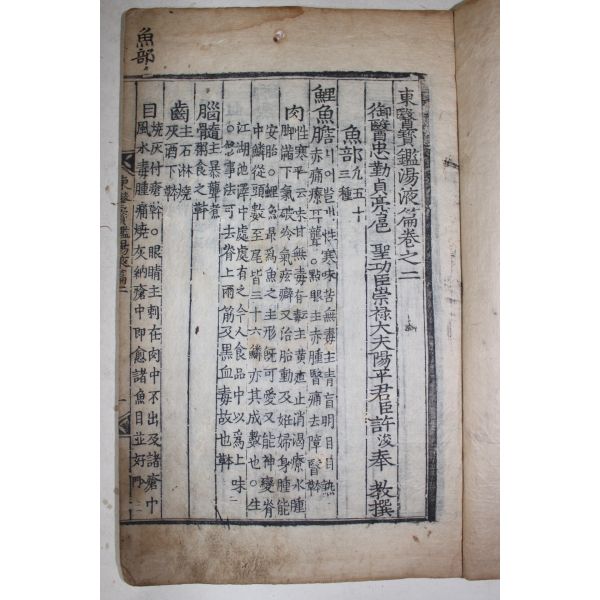 魚部
東醫寶鑑湯液篇卷之二
御醫忠勤貞亮扈聖功臣崇祿大夫陽平君臣許浚奉教撰
魚部凡五十三種
鯉魚膽리어의열性寒味苦無毒主靑盲明目目熱
赤痛療耳聾○點眼主赤腫瞖痛去障瞖
肉性寒平云味甘無毒有毒主黃疸止消渴療水腫
脚滿下氣破冷氣痃癖又治胎動及姙婦身腫能
安胎○鯉魚最爲魚之主形旣可愛又能神變脊
中鱗從頭數至尾皆三十六鱗亦其成數也○生
江湖池澤中處處有之今人食品中以爲上味
○凡修事法可去脊上兩筋及黑血毒故也
腦髓主暴聾煮粥食之
齒主石淋燒灰酒下
目風水毒腫痛燒灰納瘡中卽愈諸魚目並好
燒灰付瘡○眼睛主刺在肉中不出及諸瘡中